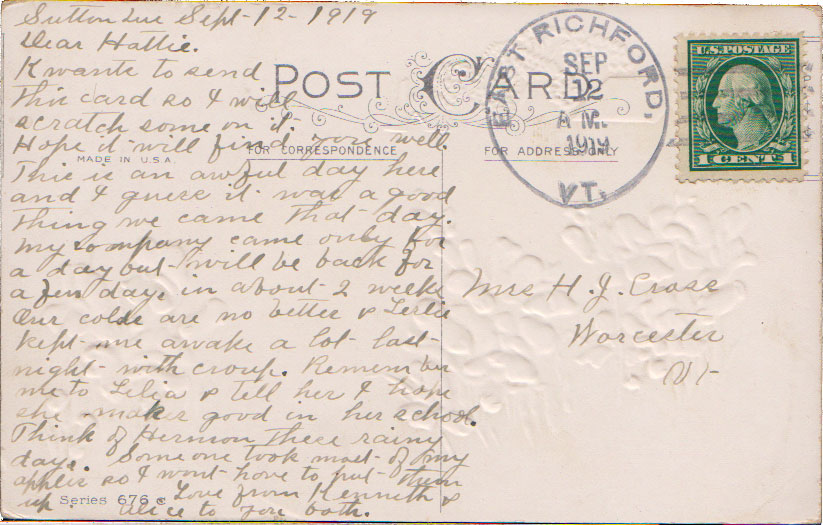 Sutton Que Sept-12-1919
Dear Hattie.
K wants to send
this card so I will
scratch some on it-
Hope it will find you well.
This is an awful day here
and I guess it was a good
thing we came that day.
My company came only for
a day but will be back for
a few days in about 2 weeks
Our colds are no better & Leslie
kept me awake a lot last
night with croup. Remember
me to Lelia & tell her I hope
she makes good in her school.
Think of Hermon these rainy
days. Someone took most of my
apples so I wont have to put them
up. Love from Kenneth &
Alice to you both.
POST CARD
MADE IN U.S.A.
FOR CORRESPONDENCE
FOR ADDRESS ONLY
EAST RICHFORD,
SEP
12
A M.
1919
VT.
U.S. POSTAGE
1 CENT 1
Mrs H. J. Cross
Worcester
Vt-
Series 676 c